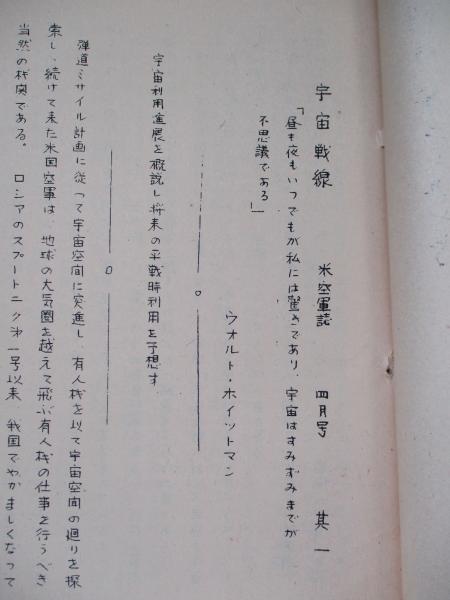 宇宙戦線　米空軍誌　四月号　其一
「昼も夜もいつでもが私には驚きであり、宇宙はすみずみまでが
不思議である」
ウオルト・ホイットマン
宇宙利用進展を概説し将来の平戦時利用を予想す
弾道ミサイル計画に従つて宇宙空间に突進し、有人机を以て宇宙空间の廻りを探
索し、続けて来た米国空軍は、地球の大気圏を越えて飛ぶ有人机の仕事を行うべき
当然の机関である。ロシアのスプートニク才一号以来、我国でやかましくなって